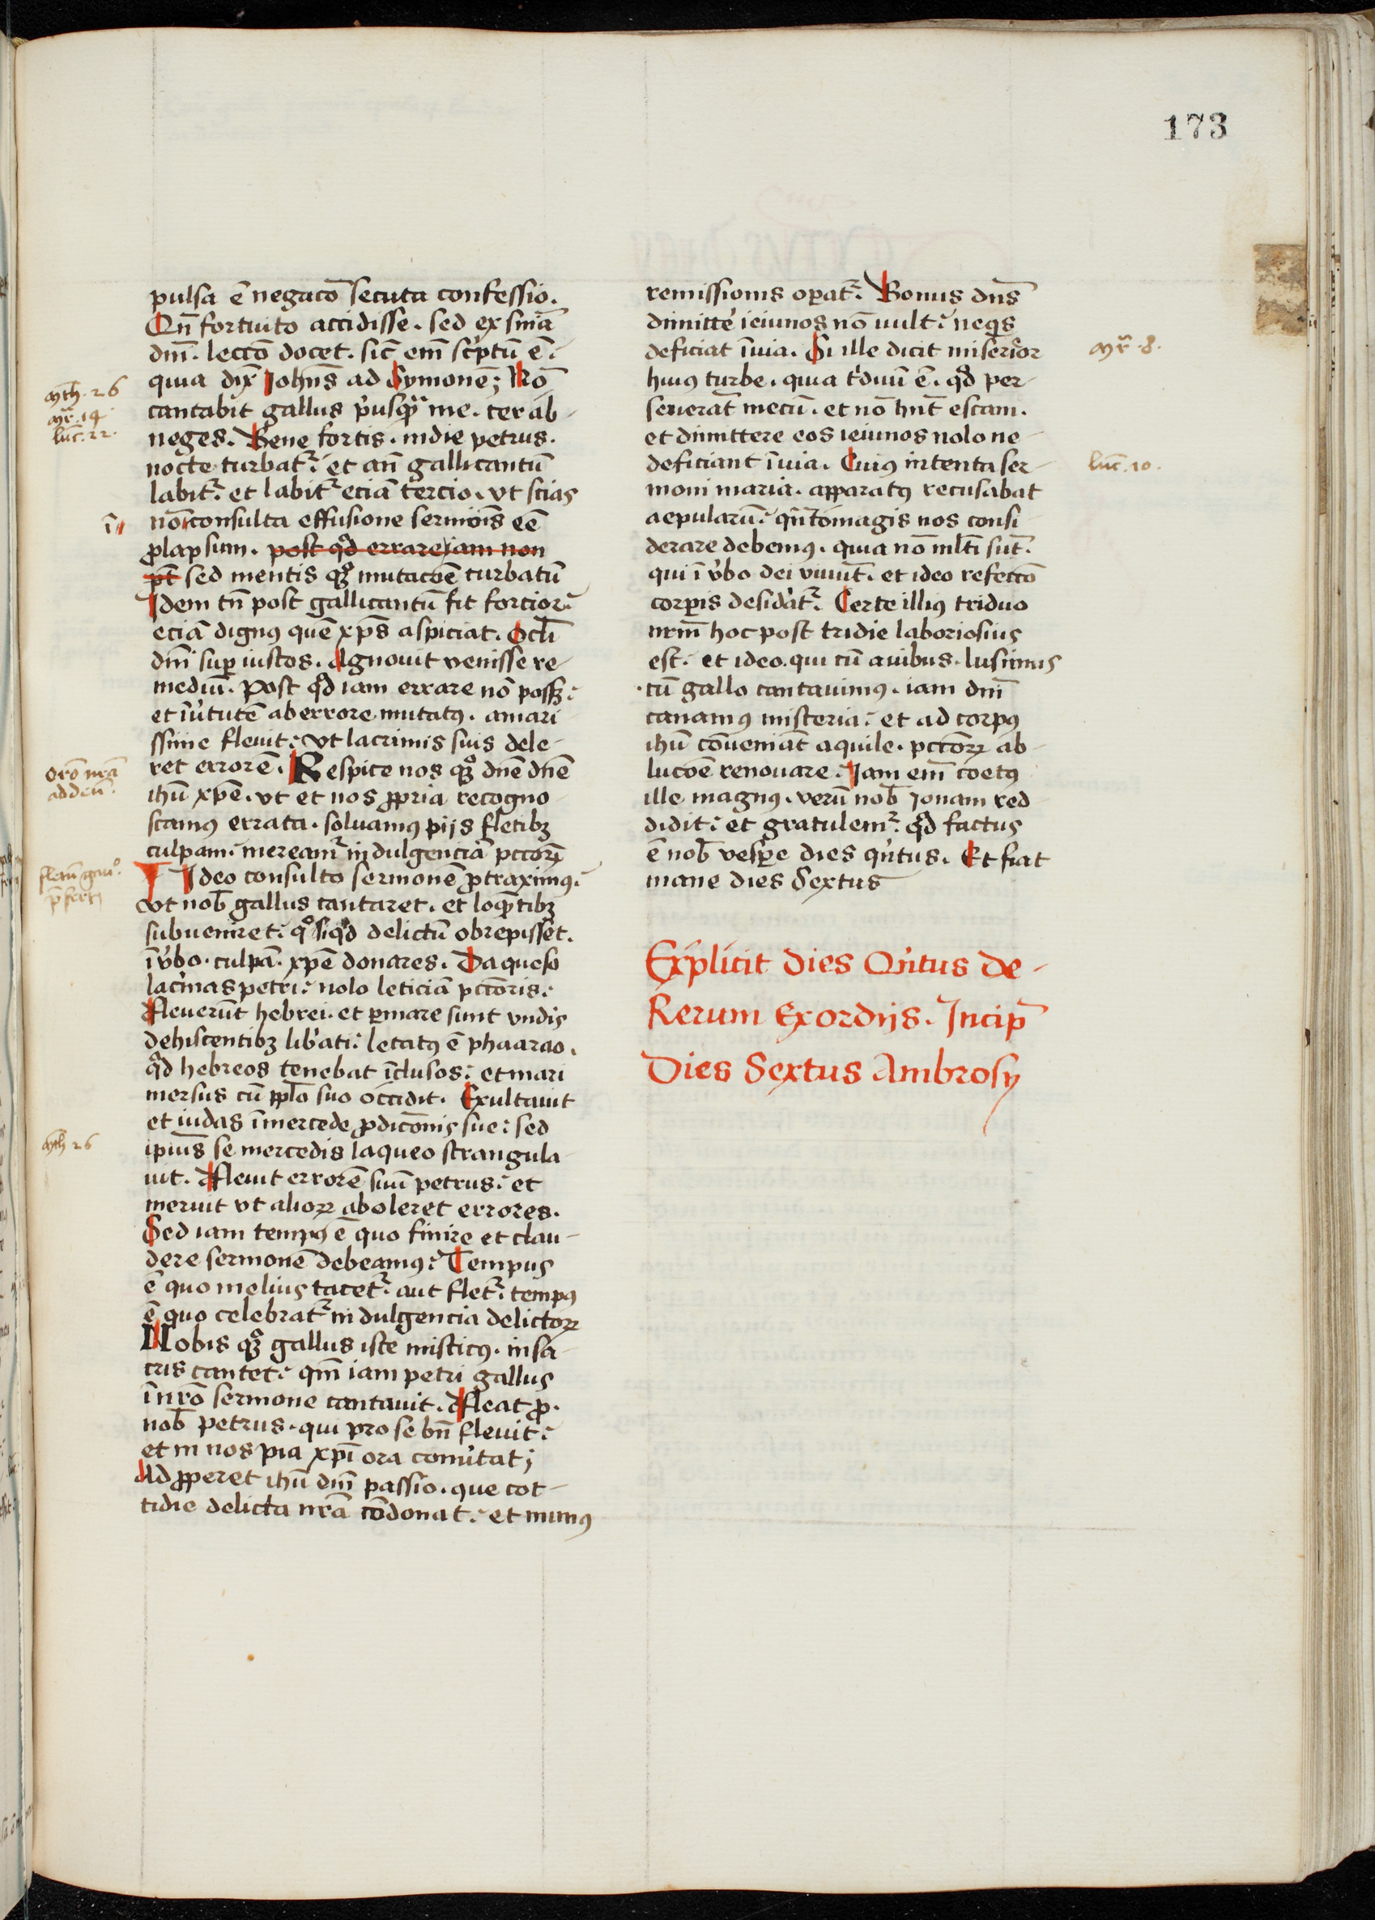 173
pulsa ē negacō secuta confessio.
Qn̄ fortuito accidisse. sed ex sinīa
dn̄i. lectō docet. sic̄ em̄ scͥptū ē:
quia dix̄ John̄s ad Symonē; Nō
mth̄. 26
mr̄. 14
luc̄. 22
cantabit gallus pͥusqᷓ me. ter ab-
neges. Bene fortis. in die petrus.
nocte turbat᷑: et an̄ gallicantū
labit᷑. et labit᷑ eciā tercio. vt scias
nō consulta effusione sermōis eē
ī
ꝓlapsum. post qd̄ errare iam non
pt̄ sed mentis qꝫ mutacōe turbatū
Idem tn̄ post gallicantū fit forcior:
eciā dignus quē xp̄s aspiciat. Ocl̄i
dn̄i suꝑ iustos. Agnouit venisse re-
mediū. Post qd̄ iam errare nō possꝫ:
et ī vͥtutē ab errore mutatꝰ. amari
ssime fleuit: vt lacrimis suis dele-
ret errorē. Respice nos qꝫ dn̄e dn̄e
Orō nr̄a
ad deū
ihū xp̄e. vt et nos ꝓpria recogno
scamus errata. soluamus pijs fletibꝫ
culpam: mereamᷣ indulgenciā pcc̄orꝫ
Ideo consulto sermonē ꝓtraximꝰ:
vt nob̄ gallus cantaret. et loqᷓntibꝫ
subueniret: qͦ siqd̄ delictū obrepisset.
ī vͥbo. culpā. xp̄e donares. Da queso
lacͥmas petri: nolo leticiā pcc̄oris:
Fleuerūt hebrei. et ꝑ mare sunt vndis
dehiscentibꝫ libͥati: letatꝰ ē phaarao.
qd̄ hebreos tenebat īclusos: et mari
mersus cū ppl̄o suo occidit. Exultauit
et iudas ī mercede ꝓdicōnis sue: sed
mth̄ 26
ipius̄ se mercedis laqueo strangula
uit. Fleuit errorē suū petrus: et
meruit vt aliorꝫ aboleret errores.
Sed iam tempꝰ ē quo finire et clau-
dere sermonē debeamꝰ: Tempus
ē quo melius tacet᷑: aut flet᷑: tempꝰ
ē quo celebrat᷑ indulgencia delictorꝫ
Nobis qꝫ gallus iste misticꝰ. in sa-
cris cantet: qm̄ iam petri gallus
ī nr̄o sermone cantauit. Fleat ꝓ.
nob̄ petrus. qui pro se bn̄ fleuit:
et in nos pia xp̄i ora conͣutat;
Adꝓperet ihū dn̄i passio. que cot-
tidie delicta nr̄a cōdonat: et munꝰ
remissionis oꝑat᷑. Bonus dn̄s
dimitte ieiunos nō uult: neqs
deficiat ī uia. Si ille dicit misereor
mr̄. 8.
huius turbe. quia tͥduū ē. qd̄ per-
seuerāt mecū. et nō hn̄t escam.
et dimittere eos ieiunos nolo ne-
deficiant ī uia. Cuiꝰ intenta ser-
luc̄. 10.
moni maria. apparatꝰ recusabat
aepularū: qn̄to magis nos consi
derare debemꝰ. quia nō ml̄ti sūt.
qui ī vͥbo dei viuūt. et ideo refectō
corꝑis desidͥat᷑. Certe illius triduo
nrm̄ hoc post tridie laboriosius
est. et ideo. qui cū auibus. lusimus
cū gallo cantauimꝰ. iam dn̄i
canamꝰ misteria: et ad corpꝰ
ihū cōueniāt aquile. pcc̄orꝫ ab-
lucōe renouate: Jam em̄ coetꝰ
ille magnꝰ. verū nob̄ Jonam red
didit: et gratulemᷣ. qd̄ factus
ē nob̄ vespe dies qͥntus. Et fiat
mane dies Sextus
Explicit dies Qͥntus de-
Rerum Exordijs. Incip̄
Dies Sextus Ambrosy